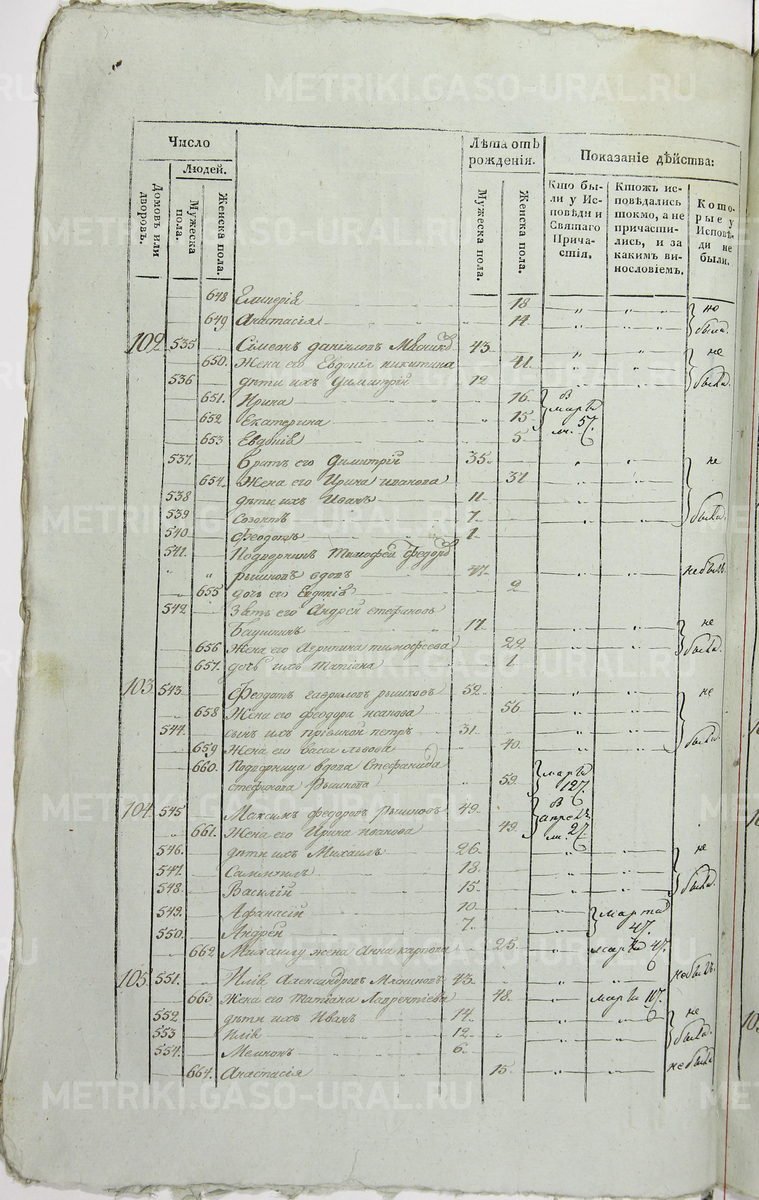 METRIKI.GASO-URAL.RU
Число
Людей.
Домовъ или дворовъ.
Мужеска пола.
Женска пола.
Лѣта отъ рожденія.
Мужеска пола.
Женска пола.
Показаніе дѣйства:
Кто были у Исповѣди и Святаго Причастія.
Ктожъ исповѣдались токмо, а не причастились, и за какимъ винословіемъ.
Которые у Исповѣди не были.
648 18
649 Анастасія 14 не была
102 535 Симеонъ Даниловъ 43
650. Жена его Евдокія Никитина 41 не
536 дѣти ихъ Димитрій 12 были
651. Ирина 16 въ
652 Екатерина 15 марта
653 Евдокія 5
537. братъ его Димитрій 35 не
654. Жена его Ирина Иванова 37
538 дѣти ихъ Иванъ 11
539 Созонтъ 7 были
540 Феодотъ 1
541. Подворникъ Тимофей Федоровъ
вдовъ 47 не былъ
655 дочь его Евдокія 2
542 Зять его Андрей Стефановъ
17 не
656 Жена его Агрипина Тимофеева 22 были
657. дочь ихъ Татіана 1
103. 543 Феодотъ Гавриловъ Рышковъ 52 не
658 Жена его Феодора 56
544. сынъ ихъ пріемной Петръ 31 были
659 Жена его Васса Львова 40
660. Подворница вдова Стефанида
Стефанова Рышкова 59 марта
104. 545 Максимъ Федоровъ Рышковъ 49 въ
661. Жена его Ирина Иванова 49 апрелѣ
546. дѣти ихъ Михаилъ 26 не
547. Самуилъ 18
548. Василій 15 были
549. Афанасій 10 марта
550. Андрей 7 47.
662 Михаилу жена Анна Карпова 25 марта 47.
105. 551. Илія Александровъ 43 не былъ
663 Жена его Татіана Лаврентіева 48 марта
552 дѣти ихъ Иванъ 14 не
553 Илія 12 были
554. Мемнонъ 6
664. Анастасія 15 не была